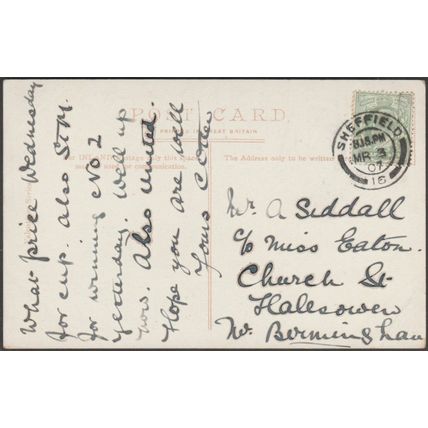 POST CARD.
PRINTED IN GREAT BRITAIN
For INLAND Postage only this space
The Address only to be written
SHEFFIELD
8.15 PM
MR 3
07
16
What price Wednesday
for cup. also S.T.M.
for winning No 2
yesterday. Well up
now. Also United.
Hope you are well
Yours
Mr. A Siddall
c/o Miss Eaton.
Church St
Halesowen
Nr. Birmingham